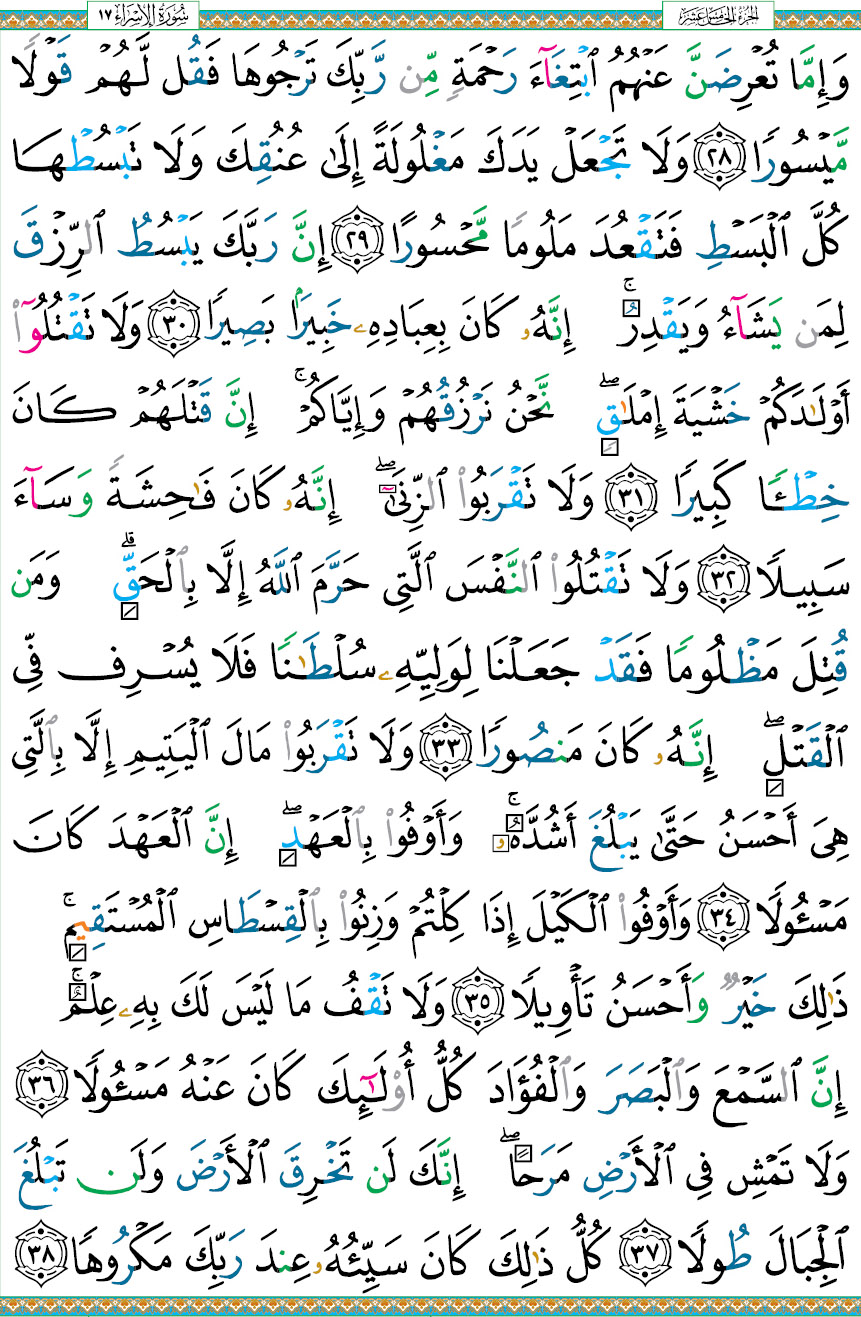 الجزء الخامس عشر
سُورَةُ الإِسْرَاءِ ١٧
وَإِمَّا تُعْرِضَنَّ عَنْهُمُ ٱبْتِغَآءَ رَحْمَةٍ مِّن رَّبِّكَ تَرْجُوهَا فَقُل لَّهُمْ قَوْلًا
مَّيْسُورًا ٢٨ وَلَا تَجْعَلْ يَدَكَ مَغْلُولَةً إِلَىٰ عُنُقِكَ وَلَا تَبْسُطْهَا
كُلَّ ٱلْبَسْطِ فَتَقْعُدَ مَلُومًا مَّحْسُورًا ٢٩ إِنَّ رَبَّكَ يَبْسُطُ ٱلرِّزْقَ
لِمَن يَشَآءُ وَيَقْدِرُ ۚ إِنَّهُۥ كَانَ بِعِبَادِهِۦ خَبِيرًۢا بَصِيرًا ٣٠ وَلَا تَقْتُلُوٓا۟
أَوْلَٰدَكُمْ خَشْيَةَ إِمْلَٰقٍ ۖ نَّحْنُ نَرْزُقُهُمْ وَإِيَّاكُمْ ۚ إِنَّ قَتْلَهُمْ كَانَ
خِطْـًٔا كَبِيرًا ٣١ وَلَا تَقْرَبُوا۟ ٱلزِّنَىٰٓ ۖ إِنَّهُۥ كَانَ فَٰحِشَةً وَسَآءَ
سَبِيلًا ٣٢ وَلَا تَقْتُلُوا۟ ٱلنَّفْسَ ٱلَّتِى حَرَّمَ ٱللَّهُ إِلَّا بِٱلْحَقِّ ۗ وَمَن
قُتِلَ مَظْلُومًا فَقَدْ جَعَلْنَا لِوَلِيِّهِۦ سُلْطَٰنًا فَلَا يُسْرِف فِّى
ٱلْقَتْلِ ۖ إِنَّهُۥ كَانَ مَنصُورًا ٣٣ وَلَا تَقْرَبُوا۟ مَالَ ٱلْيَتِيمِ إِلَّا بِٱلَّتِى
هِىَ أَحْسَنُ حَتَّىٰ يَبْلُغَ أَشُدَّهُۥ ۚ وَأَوْفُوا۟ بِٱلْعَهْدِ ۖ إِنَّ ٱلْعَهْدَ كَانَ
مَسْـُٔولًا ٣٤ وَأَوْفُوا۟ ٱلْكَيْلَ إِذَا كِلْتُمْ وَزِنُوا۟ بِٱلْقِسْطَاسِ ٱلْمُسْتَقِيمِ ۚ
ذَٰلِكَ خَيْرٌ وَأَحْسَنُ تَأْوِيلًا ٣٥ وَلَا تَقْفُ مَا لَيْسَ لَكَ بِهِۦ عِلْمٌ ۚ
إِنَّ ٱلسَّمْعَ وَٱلْبَصَرَ وَٱلْفُؤَادَ كُلُّ أُو۟لَٰٓئِكَ كَانَ عَنْهُ مَسْـُٔولًا ٣٦
وَلَا تَمْشِ فِى ٱلْأَرْضِ مَرَحًا ۖ إِنَّكَ لَن تَخْرِقَ ٱلْأَرْضَ وَلَن تَبْلُغَ
ٱلْجِبَالَ طُولًا ٣٧ كُلُّ ذَٰلِكَ كَانَ سَيِّئُهُۥ عِندَ رَبِّكَ مَكْرُوهًا ٣٨